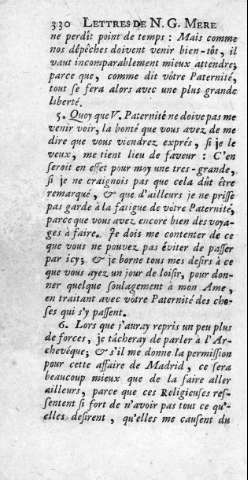 330 LETTRES DE N. G. MERE
ne perdît point de temps : Mais comme
nos dépêches doivent venir bien-tôt, il
vaut incomparablement mieux attendre;
parce que, comme dit vôtre Paternité,
tout se fera alors avec une plus grande
liberté.
5. Quoy que V. Paternité ne doive pas me
venir voir, la bonté que vous avez de me
dire que vous viendrez exprés, si je le
veux, me tient lieu de faveur : C'en
seroit en effet pour moy une tres-grande,
si je ne craignois pas que cela dût être
remarqué, & que d'ailleurs je ne prisse
pas garde à la fatigue de vôtre Paternité,
parce que vous avez encore bien des voya-
ges à faire. Je dois me contenter de ce
que vous ne pouvez pas éviter de passer
par icy; & je borne tous mes desirs à ce
que vous ayez un jour de loisir, pour don-
ner quelque soulagement à mon Ame,
en traitant avec vôtre Paternité des cho-
ses qui s'y passent.
6. Lors que j'auray repris un peu plus
de forces, je tâcheray de parler à l'Ar-
chevêque; & s'il me donne la permission
pour cette affaire de Madrid, ce sera
beaucoup mieux que de la faire aller
ailleurs, parce que ces Religieuses res-
sentent si fort de n'avoir pas tout ce qu'-
elles desirent, qu'elles me causent du